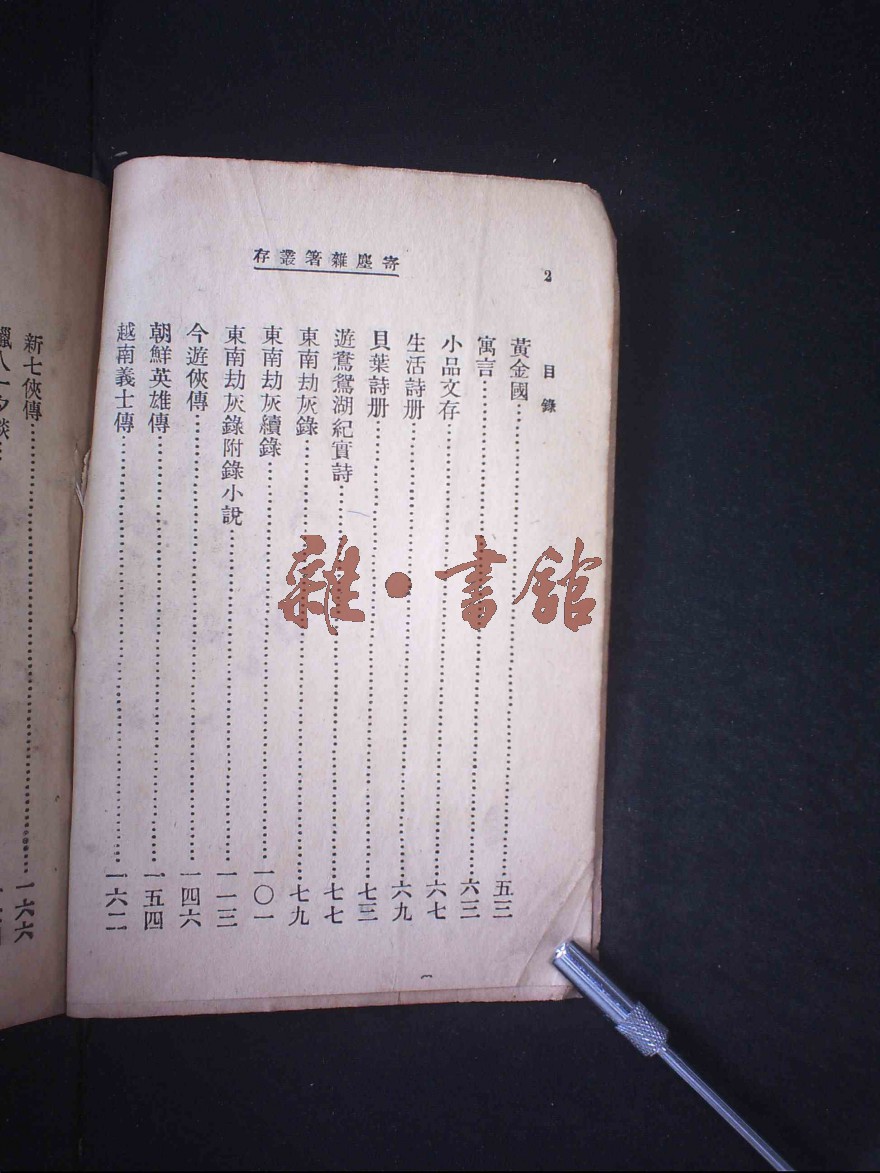 寄塵雜箸叢存
2
目錄
黃金國……五三
寓言……六三
小品文存……六七
生活詩册……六九
貝葉詩册……七三
遊鴛鴦湖紀實詩……七七
東南劫灰錄……七九
東南劫灰續錄……一〇一
東南劫灰錄附錄小說……一一三
今遊俠傳……一四六
朝鮮英雄傳……一五四
越南義士傳……一六二
新七俠傳……一六六
八一夕談
雜·書館